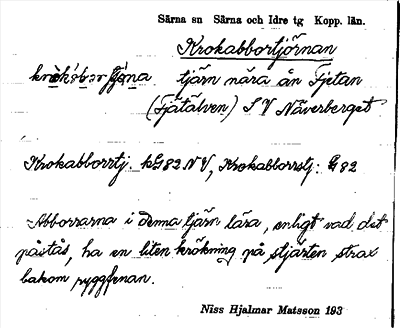 Särna sn Särna och Idre tg Kopp. län.
Krokabbortjörnan
tjärn nära ån Fjetan
(Fjätälven) S V Näverberget
Krokabborrtj. kG82 NV, Krokabborrstj: G 82
Abborrarna i denna tjärn lära, enligt vad det
påstås, ha en liten krökning på stjärten strax
bakom ryggfenan.
Niss Hjalmar Matsson 193